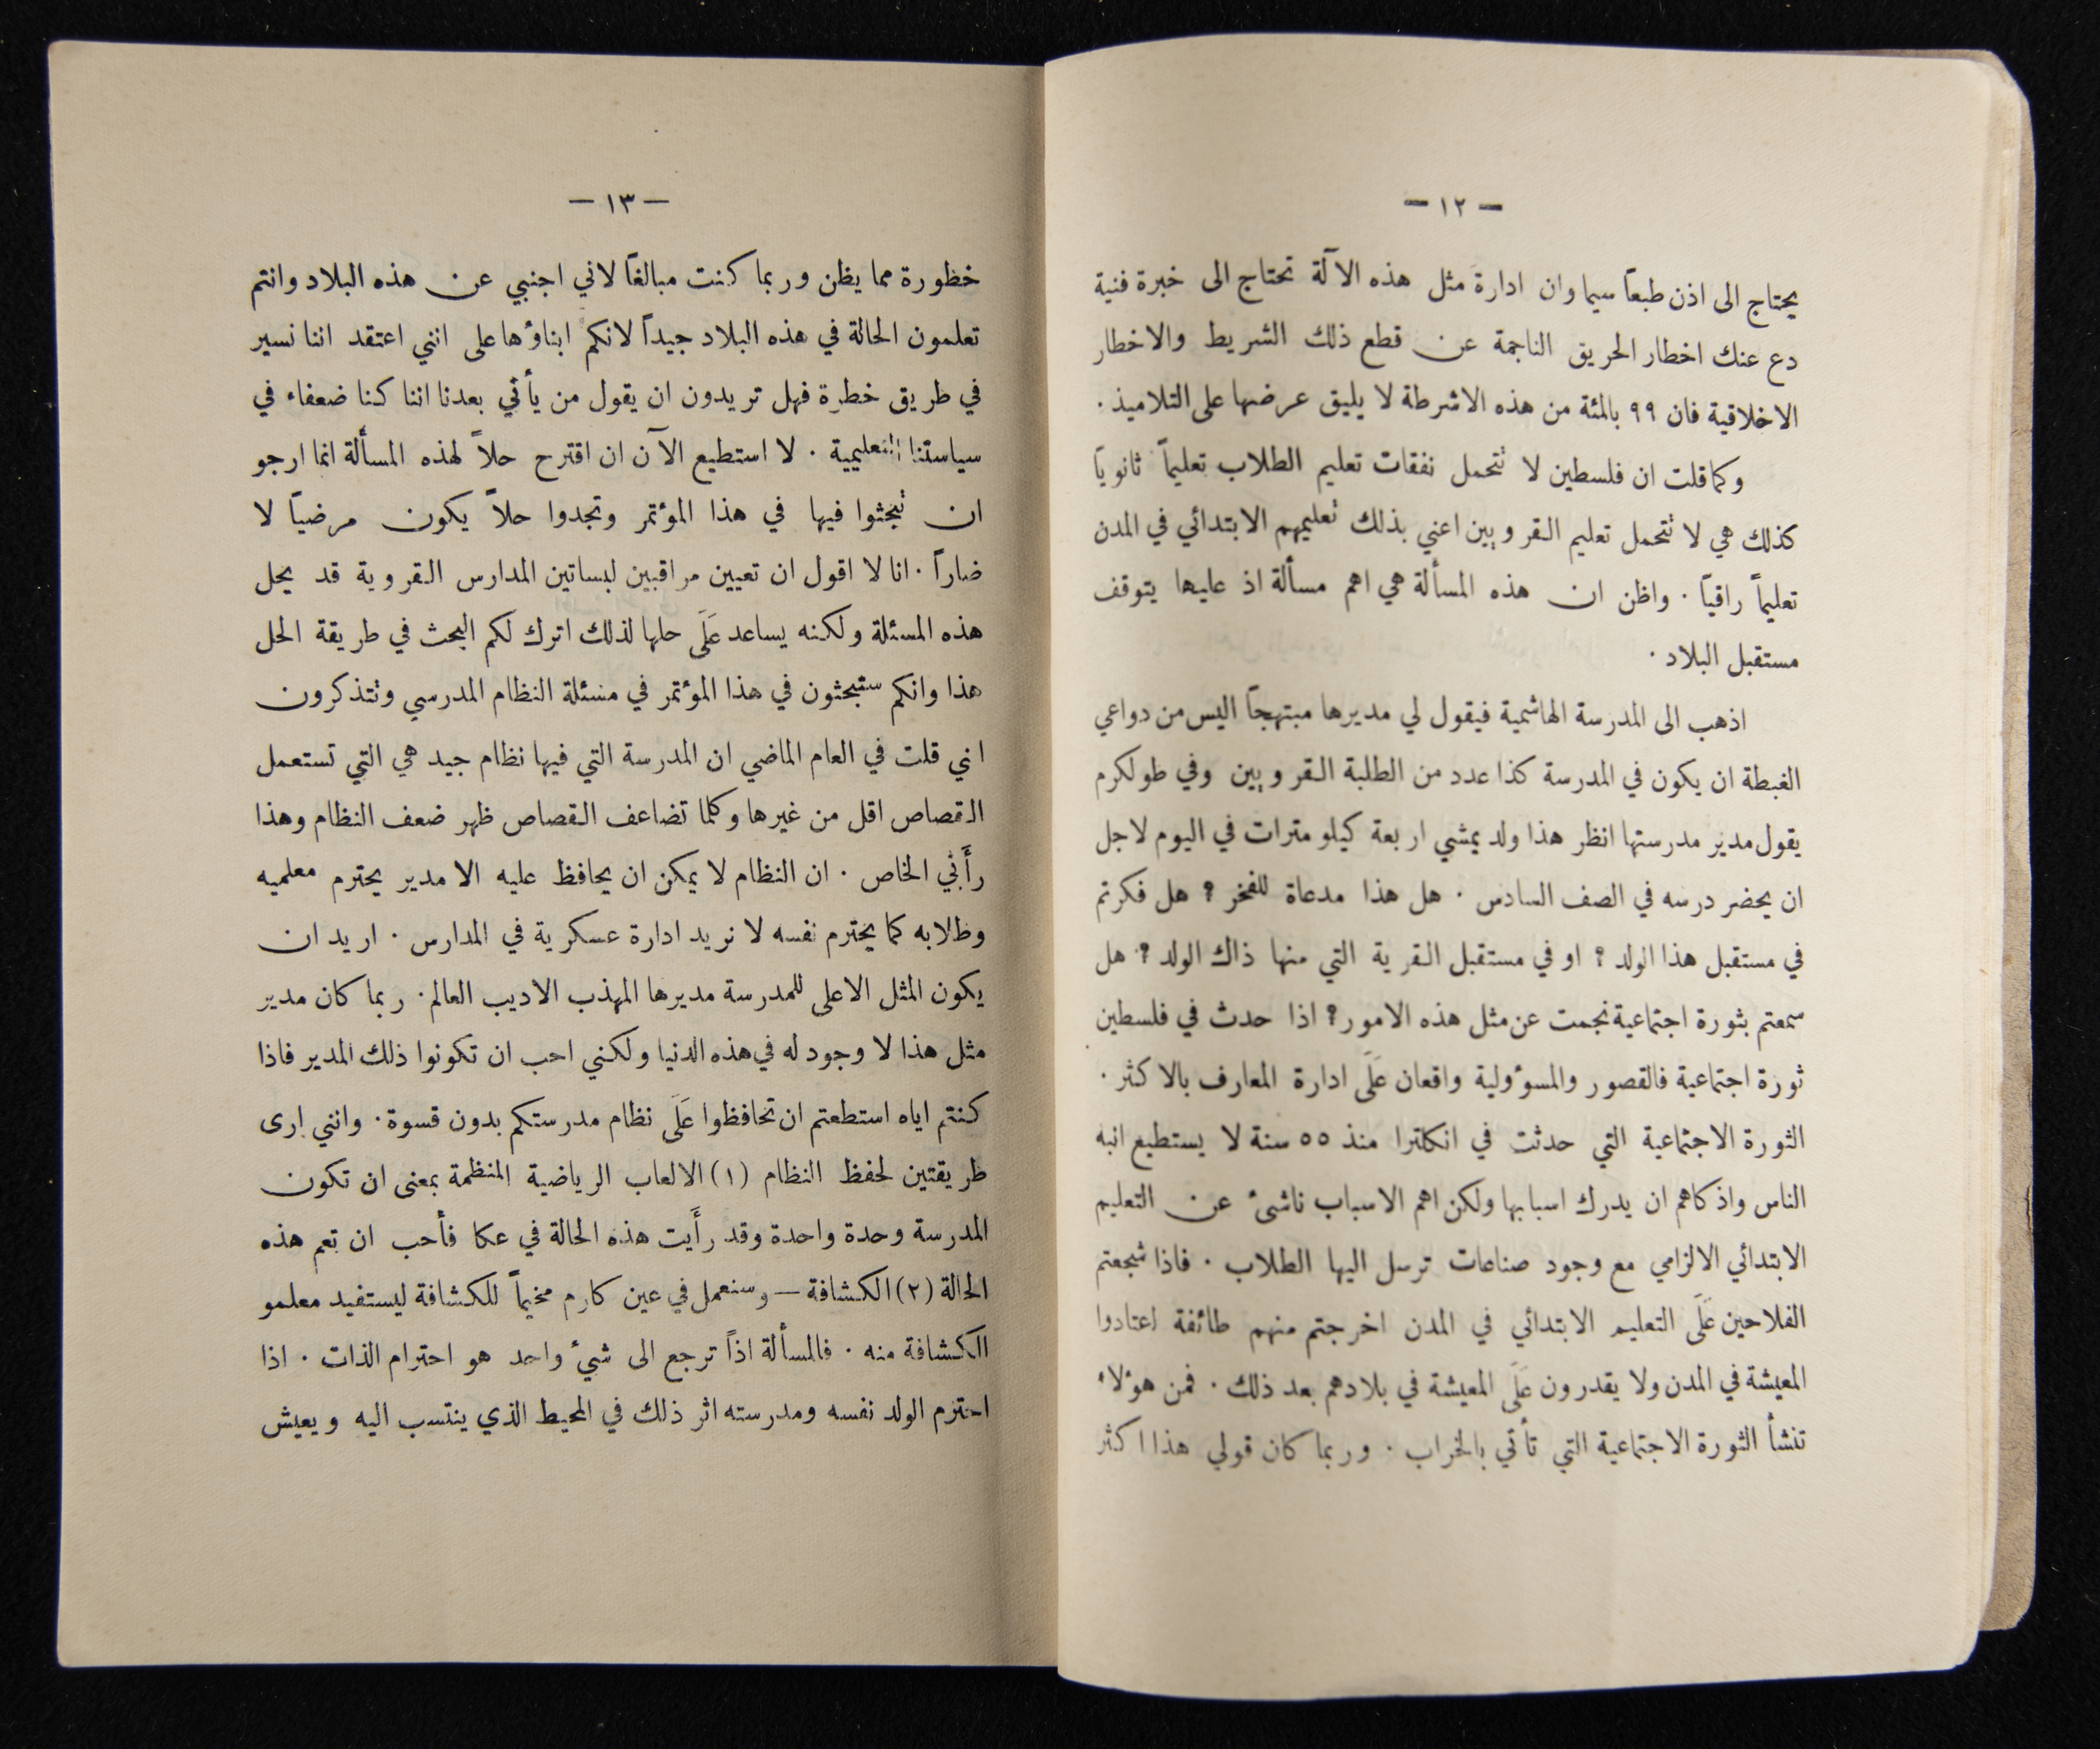 — ١٢ —
يحتاج الى اذن طبعاً سيما وان ادارة مثل هذه الآلة تحتاج الى خبرة فنية
دع عنك اخطار الحريق الناجمة عن قطع ذلك الشريط والاخطار
الاخلاقية فان ٩٩ بالمئة من هذه الاشرطة لا يليق عرضها على التلاميذ .
وكما قلت ان فلسطين لا تتحمل نفقات تعليم الطلاب تعليماً ثانوياً
كذلك هي لا تتحمل تعليم القرويين اعني بذلك تعليمهم الابتدائي في المدن
تعليماً راقياً . واظن ان هذه المسألة هي اهم مسألة اذ عليها يتوقف
مستقبل البلاد .
اذهب الى المدرسة الهاشمية فيقول لي مديرها مبتهجاً اليس من دواعي
الغبطة ان يكون في المدرسة كذا عدد من الطلبة القرويين وفي طولكرم
يقول مدير مدرستها انظر هذا ولد يمشي اربعة كيلو مترات في اليوم لاجل
ان يحضر درسه في الصف السادس . هل هذا مدعاة للفخر ؟ هل فكرتم
في مستقبل هذا الولد ؟ او في مستقبل القرية التي منها ذاك الولد ؟ هل
سمعتم بثورة اجتماعية نجمت عن مثل هذه الامور ؟ اذا حدث في فلسطين
ثورة اجتماعية فالقصور والمسؤولية واقعان عَلَى ادارة المعارف بالاكثر .
الثورة الاجتماعية التي حدثت في انكلترا منذ ٥٥ سنة لا يستطيع انبه
الناس واذكاهم ان يدرك اسبابها ولكن اهم الاسباب ناشئ عن التعليم
الابتدائي الالزامي مع وجود صناعات ترسل اليها الطلاب . فاذا شجعتم
الفلاحين عَلَى التعليم الابتدائي في المدن اخرجتم منهم طائفة اعتادوا
المعيشة في المدن ولا يقدرون عَلَى المعيشة في بلادهم بعد ذلك . فمن هؤلاء
تنشأ الثورة الاجتماعية التي تأتي بالخراب . وربما كان قولي هذا اكثر
— ١٣ —
خطورة مما يظن وربما كنت مبالغاً لاني اجنبي عن هذه البلاد وانتم
تعلمون الحالة في هذه البلاد جيداً لانكم ابناؤها على انني اعتقد اننا نسير
في طريق خطرة فهل تريدون ان يقول من يأتي بعدنا اننا كنا ضعفاء في
سياستنا التعليمية . لا استطيع الآن ان اقترح حلاً لهذه المسألة انما ارجو
ان تبحثوا فيها في هذا المؤتمر وتجدوا حلاً يكون مرضياً لا
ضاراً . انا لا اقول ان تعيين مراقبين لبساتين المدارس القروية قد يحل
هذه المسئلة ولكنه يساعد عَلَى حلها لذلك اترك لكم البحث في طريقة الحل
هذا وانكم ستبحثون في هذا المؤتمر في مسئلة النظام المدرسي وتتذكرون
اني قلت في العام الماضي ان المدرسة التي فيها نظام جيد هي التي تستعمل
القصاص اقل من غيرها وكلما تضاعف القصاص ظهر ضعف النظام وهذا
رأَيي الخاص . ان النظام لا يمكن ان يحافظ عليه الا مدير يحترم معلميه
وطلابه كما يحترم نفسه لا نريد ادارة عسكرية في المدارس . اريد ان
يكون المثل الاعلى للمدرسة مديرها المهذب الاديب العالم . ربما كان مدير
مثل هذا لا وجود له في هذه الدنيا ولكنني احب ان تكونوا ذلك المدير فاذا
كنتم اياه استطعتم ان تحافظوا عَلَى نظام مدرستكم بدون قسوة . وانني ارى
طريقتين لحفظ النظام (١) الالعاب الرياضية المنظمة بمعنى ان تكون
المدرسة وحدة واحدة وقد رأَيت هذه الحالة في عكا فأحب ان تعم هذه
الحالة (٢) الكشافة — وسنعمل في عين كارم مخيماً للكشافة ليستفيد معلمو
الكشافة منه . فالمسألة اذاً ترجع الى شيءٍ واحد هو احترام الذات . اذا
احترم الولد نفسه ومدرسته اثر ذلك في المحيط الذي ينتسب اليه ويعيش